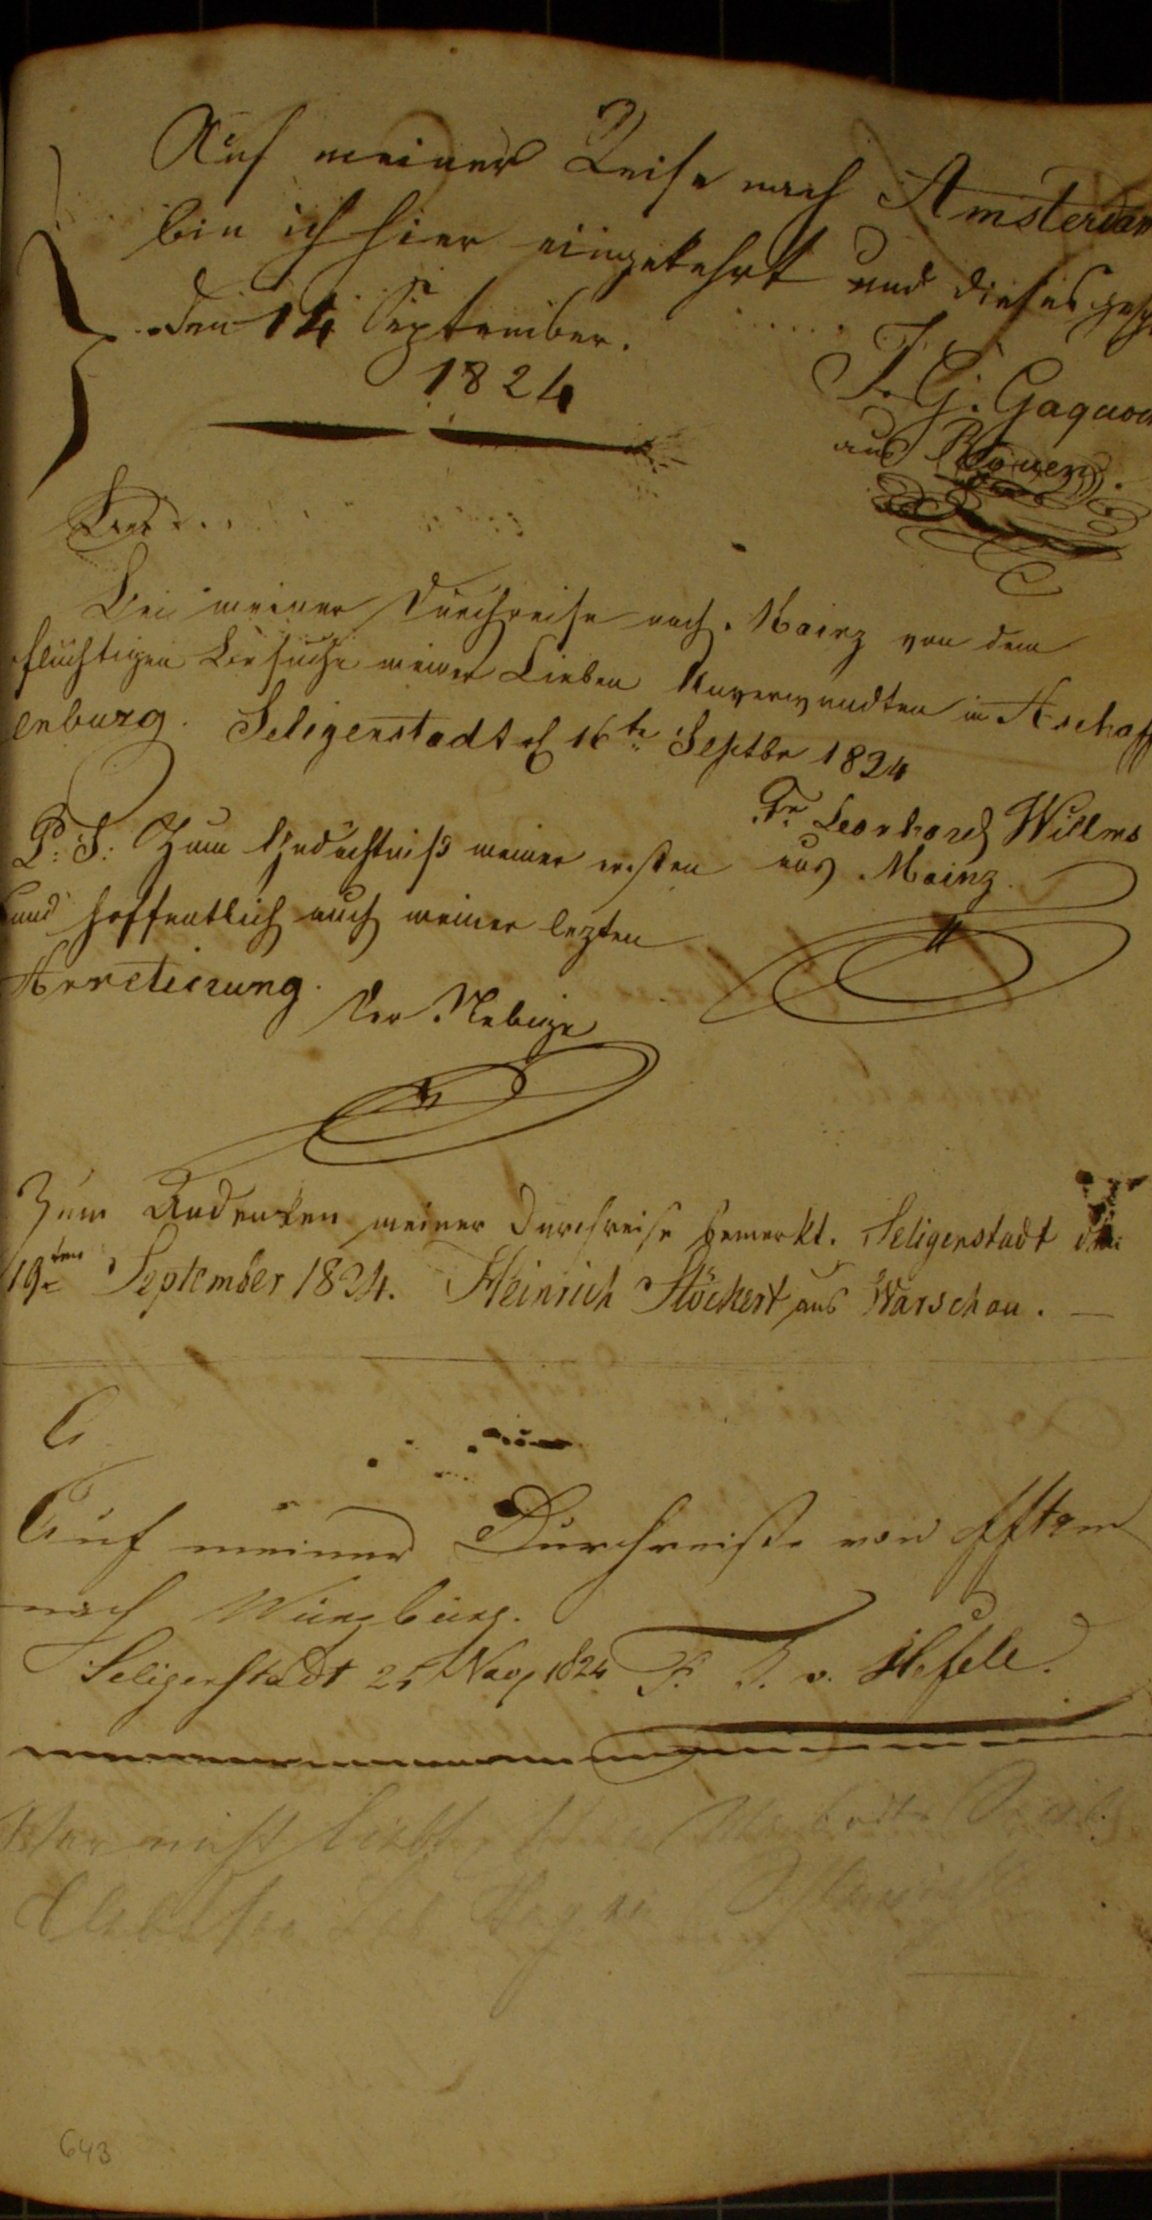 Auf meiner Reise nach Amsterdam
bin ich hier eingekehrt und dieses
den 14 September.
1824
J. G.
aus
Bei meiner Durchreise nach Mainz von dem
flüchtigen Besuche meiner Lieben Anverwandten in Aschaff
enburg. Seligenstadt d 16te Septbr 1824
Fr. Leonhard Willms
aus Mainz.
P: S: Zum Gedächtniß meiner ersten
und hoffentlich auch meiner lezten
Arretierung.
Der Nebige
Zum Andenken meiner Durchreise bemerkt. Seligenstadt den
19ten September 1824. Heinrich Stöckert aus Warschau.
Auf meiner Durchreiße von
nach Würzburg.
Seligenstadt 25 Nov 1824 F. v. Hefele.
Wer nicht liebt
643